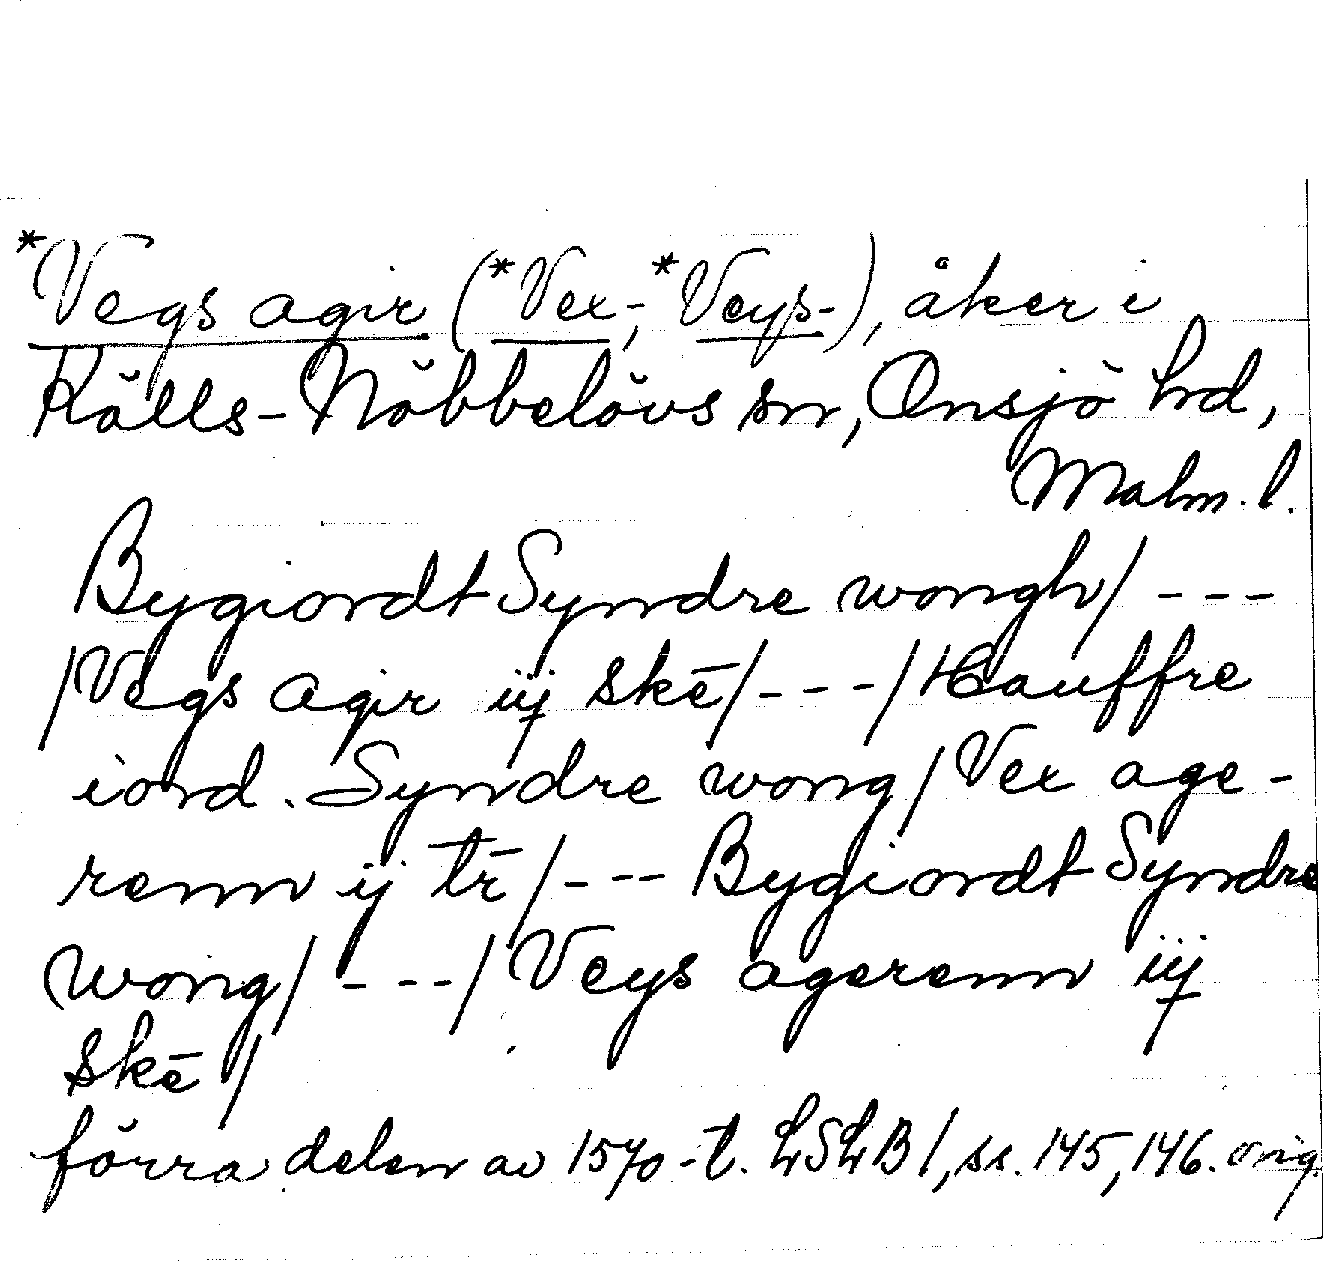 *Vegs agir (*Vex-, *Veys-), åker i
Källs-Nöbbelövs sn, Onsjö hd,
Malm. l.
Bygiordt Syndre wongh/ ---
/Vegs agir iij skē/---/Hauffre
iord. Syndre wong/Vex age-
renn ij tr̄/--- Bygiordt Syndre
wong/ ---/Veys agerenn iij
skē/
förra delen av 1570-t. LSLB 1, ss. 145, 146. orig.